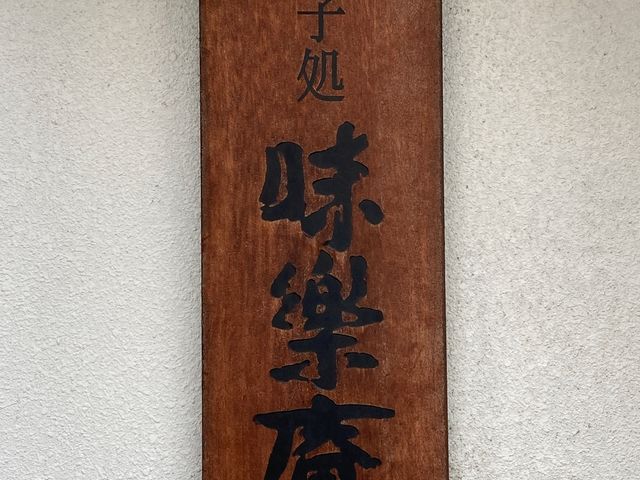 子処
味樂庵